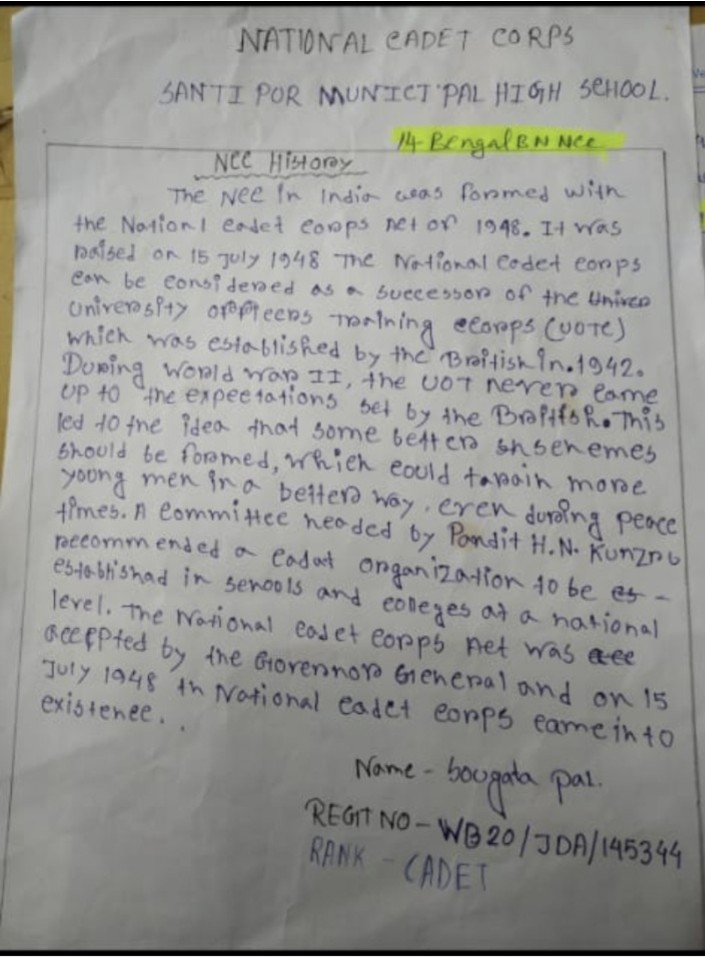 NATIONAL CADET CORPS
SANTIPOR MUNICIPAL HIGH SCHOOL.
14 Bengal BN NCC
NCC History
The NCC in India was formed with
the Nationl cadet corps Act of 1948. It was
raised on 15 July 1948 The National Cadet corps
can be considered as a successor of the Univer
University officers Training ccorps (UOTC)
which was established by the British in. 1942.
During World war II, the UOT never came
up to the expectations set by the British. This
led to the idea that some better shsehemes
should be formed, which could tarain more
young men in a better way, even during peace
times. A Committee headed by Pandit H.N. Kunzru
recommended a cadat organization to be es-
established in schools and colleges at a national
level. The National cadet corps Act was acc
accepted by the Governor General and on 15
July 1948 th National cadet corps came into
existence. . .
Name - sougata pal.
REGIT NO - WB20/JDA/145344
RANK - CADET